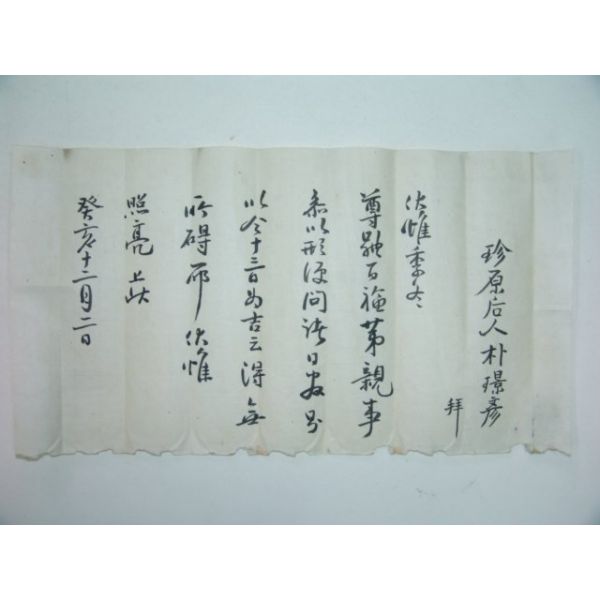 珍原后人朴璟彥
拜
伏惟季冬
尊體百福第親事
以形便問諸日
以今十三日為吉云得無
所碍耶伏惟
照亮上狀
癸亥十二月二日